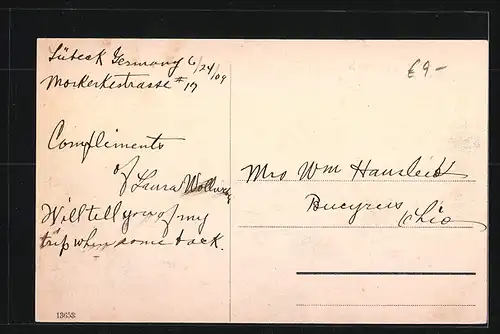 Lübeck Germany 6/24/09
Morkerkestrasse #17
Compliments
of Laura
Will tell you of my
trip when some back.
Mrs Wm Hausleib
Bucyrus
Ohio
€9-
13653